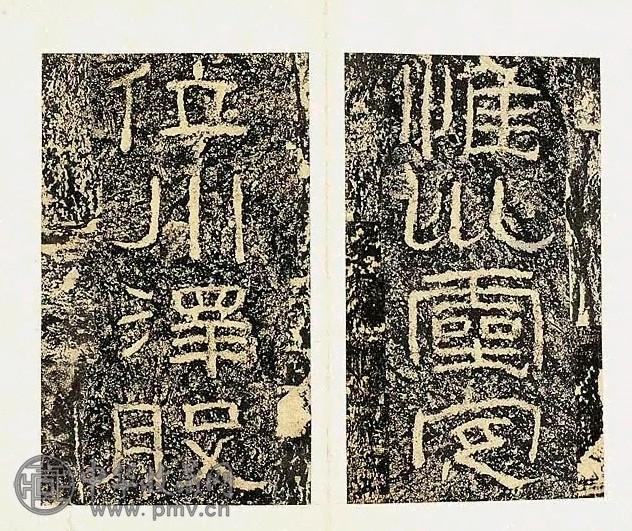 惟坤靈定
位川澤股
www.pmv.cn